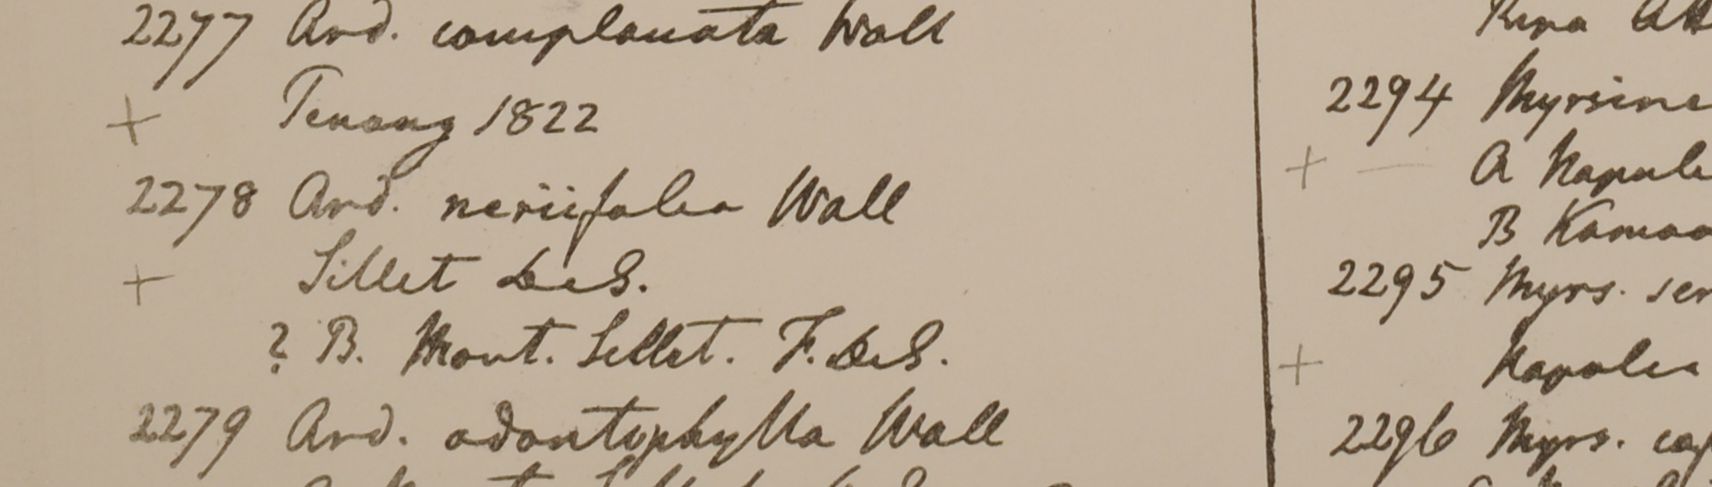 2277 Ard. complanata Wall
+ Penang 1822
2278 Ard. neriifolia Wall
+ Sillet DeS.
? B. Mont. Sillet. F. DeS.
2279 Ard. odontophylla Wall
2294 Myrsine
+ — A Napale
B Kamao
2295 Myrs. ser
+ Napalia
2296 Myrs. cap